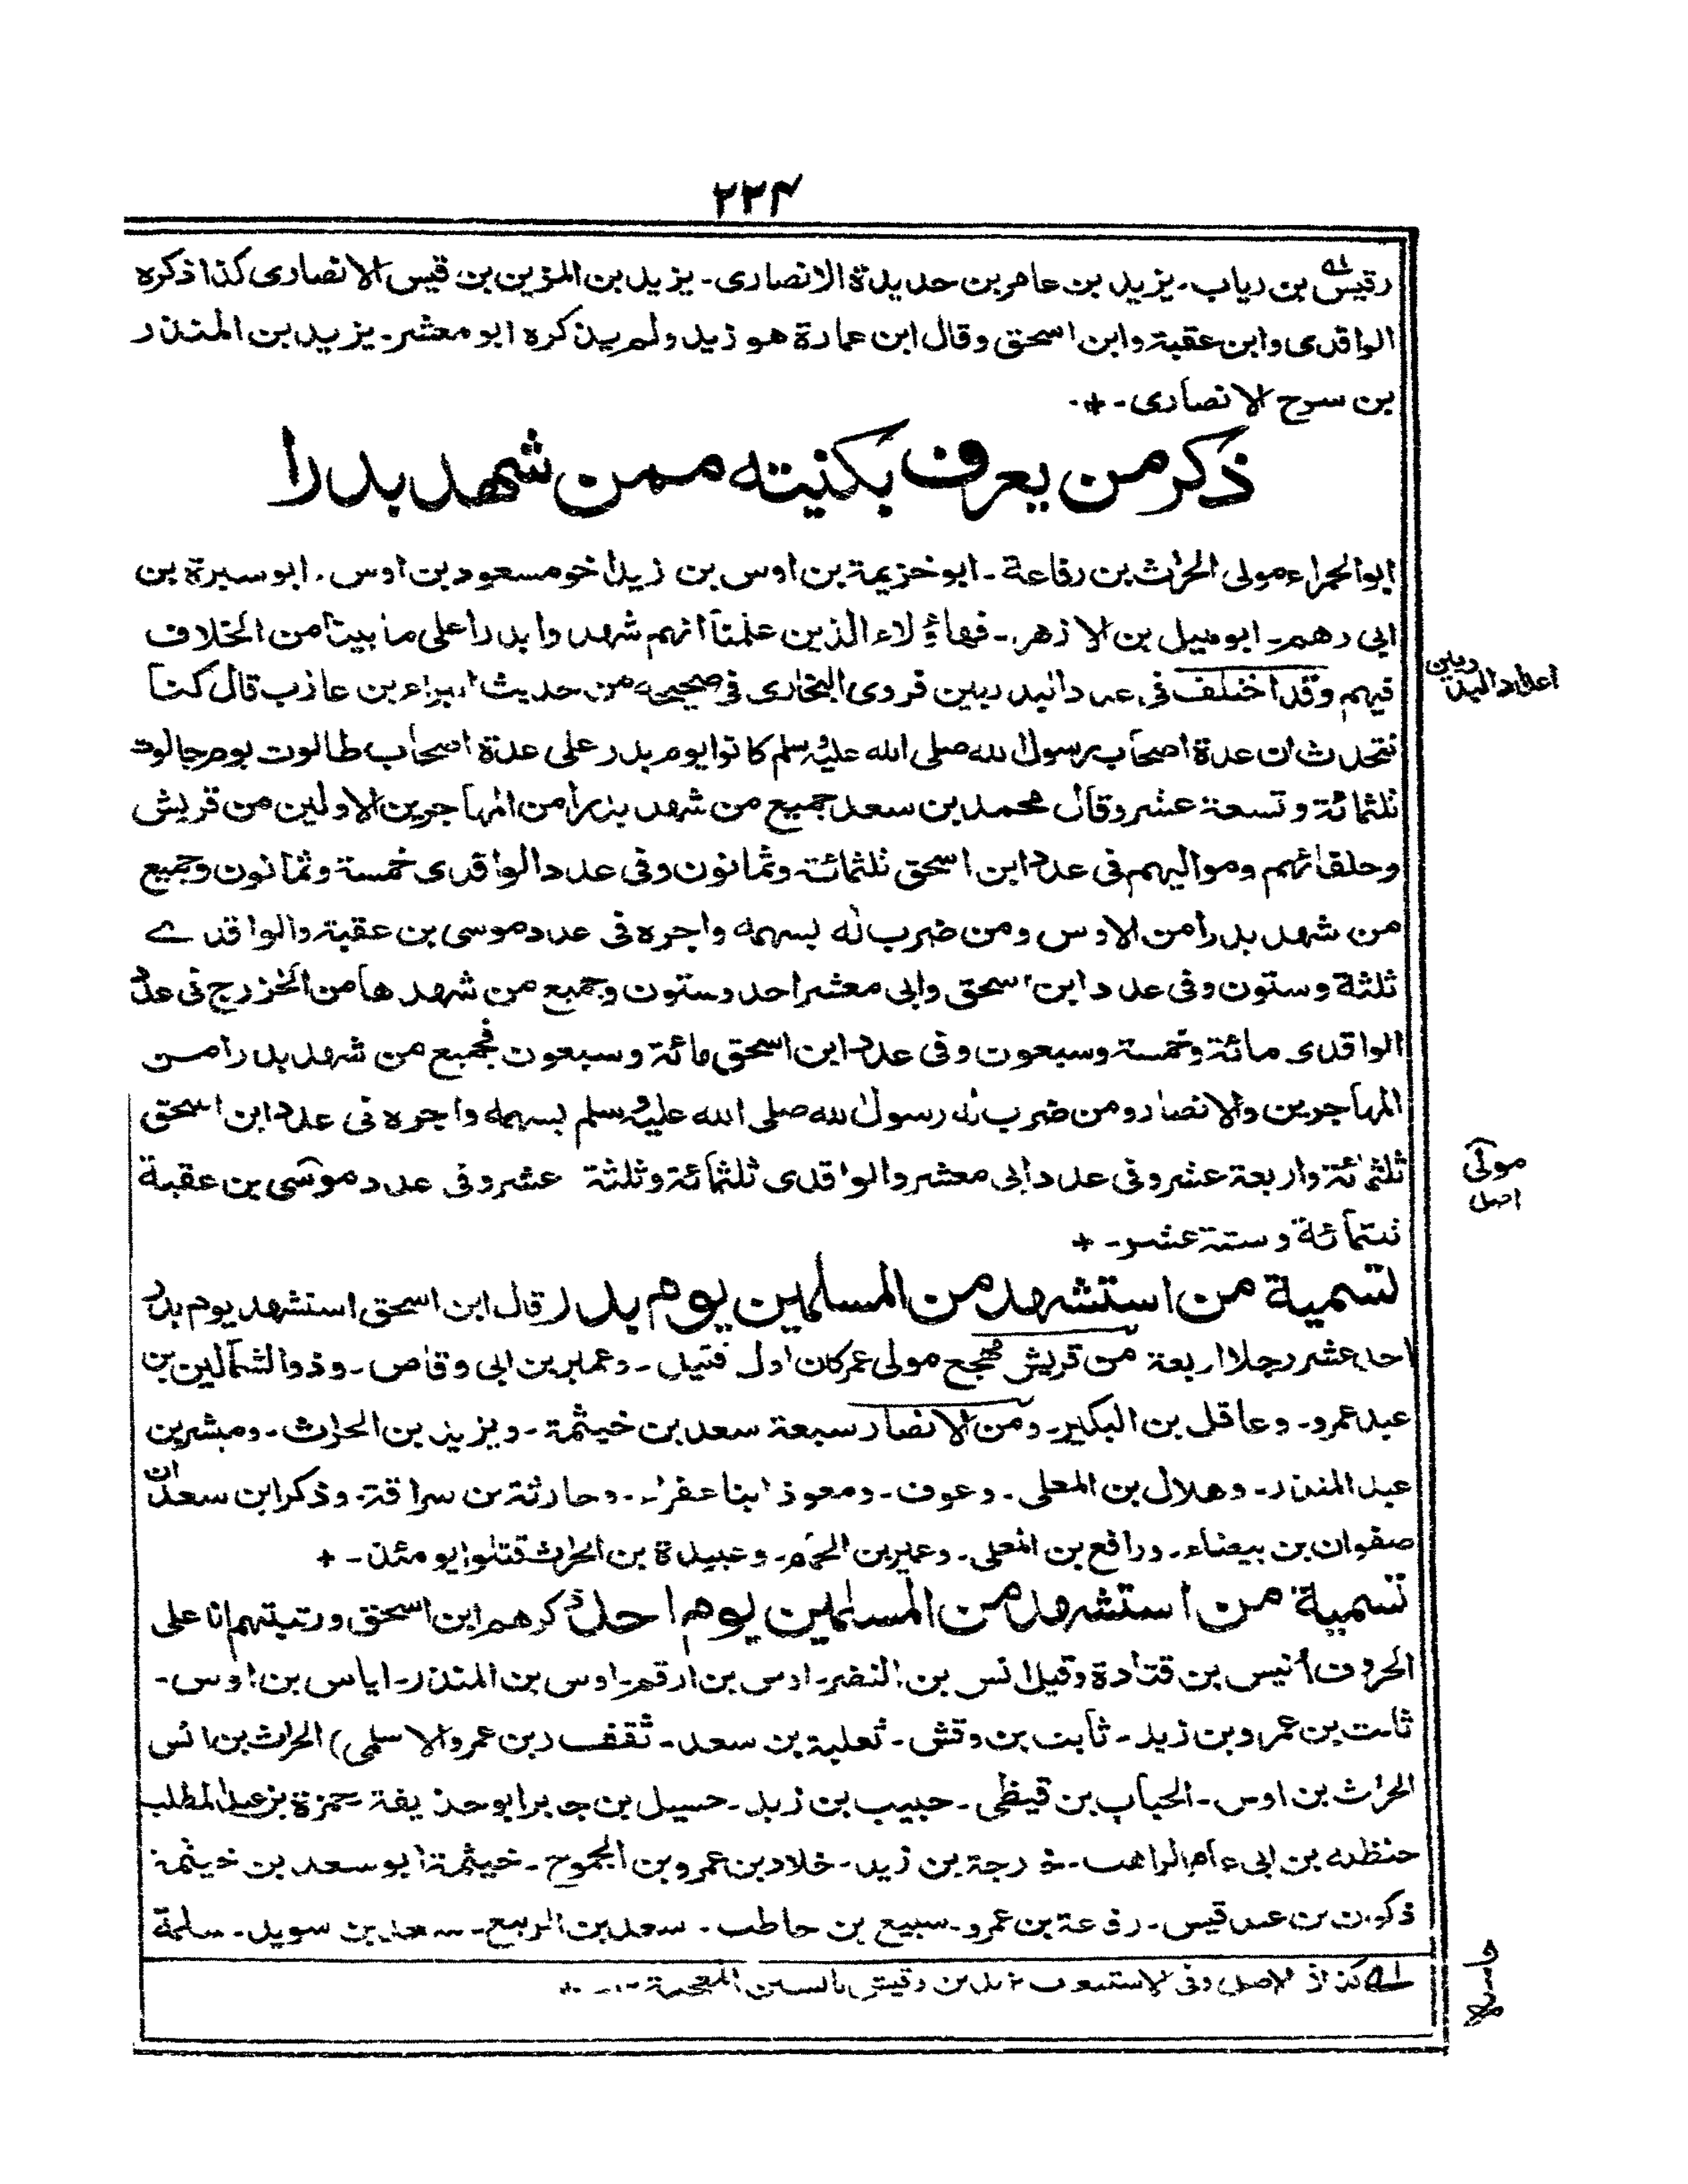 ٢٢٤
رقيش بن رياب۔ يزيد بن عامر بن حديدة الانصارى۔ يزيد بن المزين بن قيس الانصارى كذا ذكره
الواقدى وابن عقبة وابن اسحق وقال ابن عمارة هو زيد ولم يذكره ابو معشر۔ يزيد بن المنذر
بن سرح الانصارى۔
ذكر من يعرف بكنيته ممن شهد بدرا
ابو الحمراء مولى الحرث بن رفاعة۔ ابو خزيمة بن اوس بن زيد اخو مسعود بن اوس۔ ابو سبرة بن
ابى رهم۔ ابو مليل بن الازهر۔ فهاؤلاء الذين علمنا انهم شهدوا بدرا على ما بينا من الخلاف
فيهم وقد اختلف فى عدد البدريين فروى البخارى فى صحيحه من حديث البراء بن عازب قال كنا
اعداد البدريين
نتحدث ان عدة اصحاب رسول الله صلى الله عليه وسلم كانوا يوم بدر على عدة اصحاب طالوت يوم جالوت
ثلثمائة وتسعة عشر وقال محمد بن سعد جميع من شهد بدرا من المهاجرين الاولين من قريش
وحلفائهم ومواليهم فى عدد ابن اسحق ثلثمائة وثمانون وفى عدد الواقدى خمسة وثمانون وجميع
من شهد بدرا من الاوس ومن ضرب له بسهمه واجره فى عدد موسى بن عقبة والواقدے
ثلثة وستون وفى عدد ابن اسحق وابى معشر احد وستون وجميع من شهدها من الخزرج فى عدد
الواقدى مائة وخمسة وسبعون وفى عدد ابن اسحق مائة وسبعون فجميع من شهد بدرا من
المهاجرين والانصار ومن ضرب له رسول الله صلى الله عليه وسلم بسهمه واجره فى عدد ابن اسحق
ثلثمائة واربعة عشر وفى عدد ابى معشر والواقدى ثلثمائة وثلثة عشر وفى عدد موسى بن عقبة
مولى
اصل
ثلثمائة وستة عشر۔
تسمية من استشهد من المسلمين يوم بدر قال ابن اسحق استشهد يوم بدر
احد عشر رجلا اربعة من قريش مهجع مولى عمر كان اول قتيل۔ وعمير بن ابى وقاص۔ وذو الشمالين بن
عبد عمرو۔ وعاقل بن البكير۔ ومن الانصار سبعة سعد بن خيثمة۔ ويزيد بن الحرث۔ ومبشر بن
عبد المنذر۔ وهلال بن المعلى۔ وعوف۔ ومعوذ ابنا عفراء۔ وحارثة بن سراقة۔ وذكر ابن سعد ان
صفوان بن بيضاء۔ ورافع بن المعلى۔ وعمير بن الحمام۔ وعبيدة بن الحرث قتلوا يومئذ۔
تسمية من استشهد من المسلمين يوم احد ذكرهم ابن اسحق ورتبتهم انا على
الحروف انيس بن قتادة وقيل انس بن النضر۔ اوس بن ارقم۔ اوس بن المنذر۔ اياس بن اوس۔
ثابت بن عمرو بن زيد۔ ثابت بن وقش۔ ثعلبة بن سعد۔ ثقف (بن عمرو الاسلمى) الحرث بن انس
الحرث بن اوس۔ الحباب بن قيظى۔ حبيب بن زيد۔ حسيل بن جابر ابو حذيفة حمزة بن عبد المطلب
حنظلة بن ابى عامر الراهب۔ خارجة بن زيد۔ خلاد بن عمرو بن الجموح۔ خيثمة ابو سعد بن خيثمة
ذكوان بن عبد قيس۔ رفاعة بن عمرو۔ سبيع بن حاطب۔ سعد بن الربيع۔ سعد بن سويد۔ سلمة
لے كذا فى الاصل وفى الاستيعاب يزيد بن رقيش بالسين المعجمة